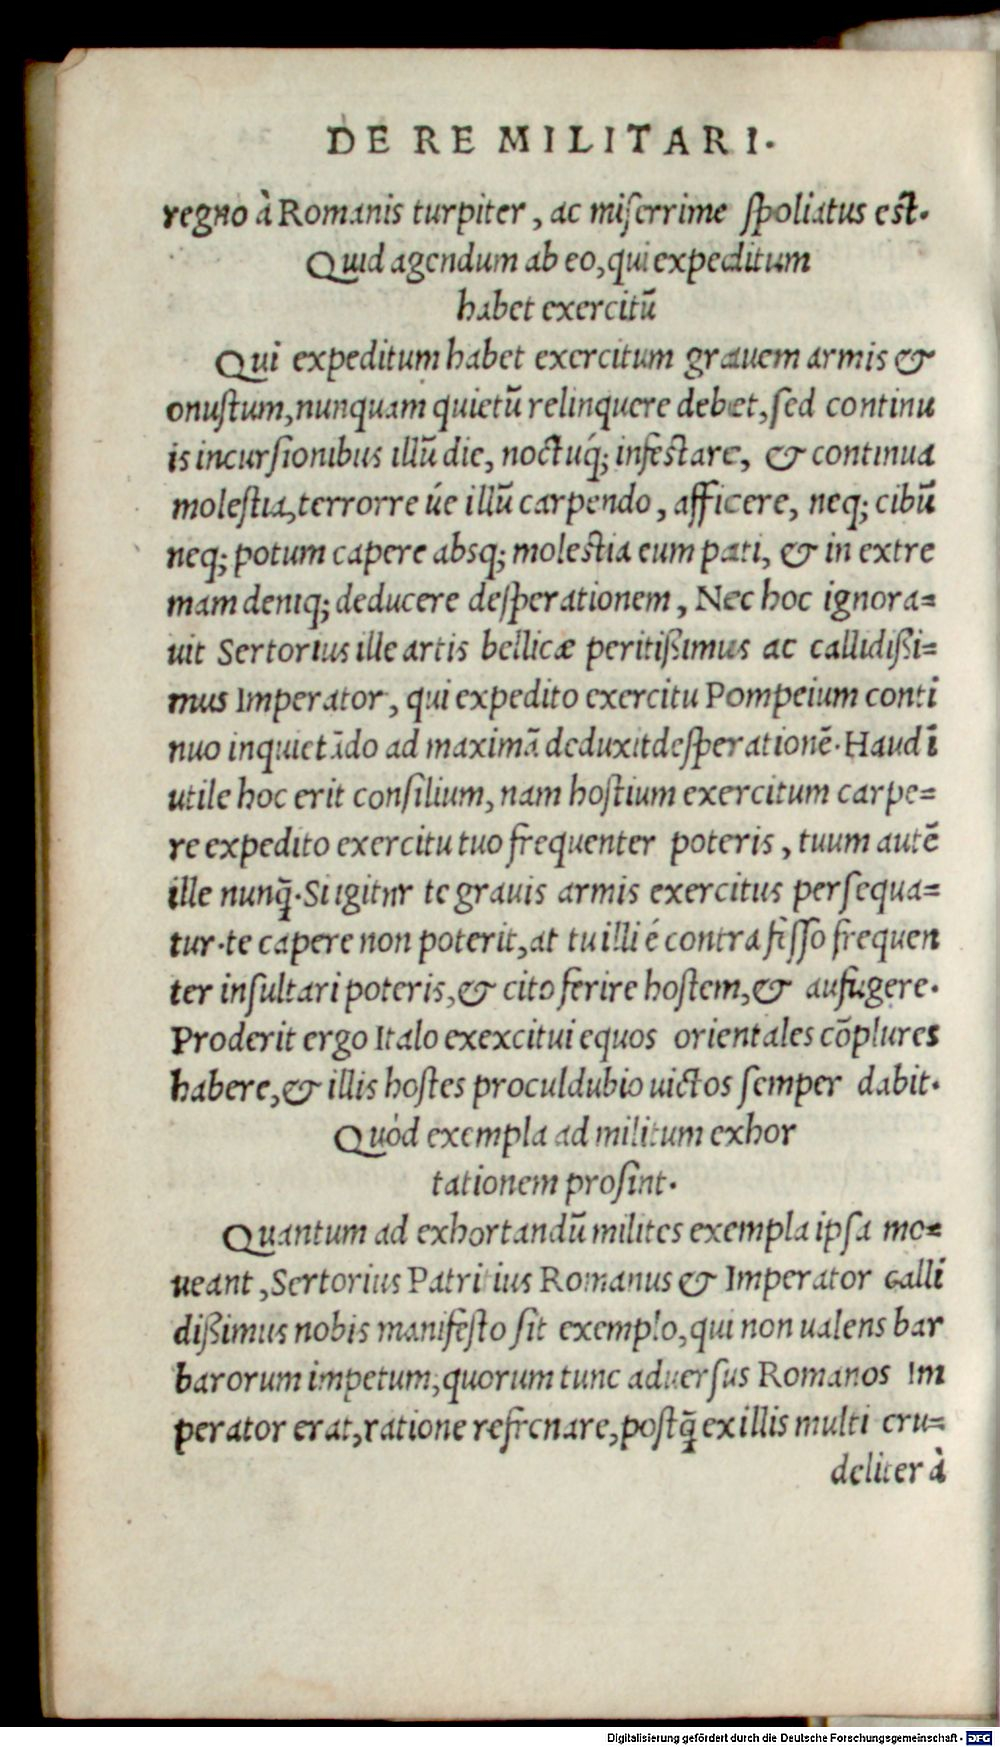 DE RE MILITARI.
regno à Romanis turpiter, ac miserrime spoliatus est.
Quid agendum ab eo, qui expeditum
habet exercitū
Qui expeditum habet exercitum grauem armis &
onustum, nunquam quietū relinquere debet, sed continu
is incursionibus illū die, noctúq; infestare, & continua
molestia, terrorre úe illū carpendo, afficere, neq; cibū
neq; potum capere absq; molestia eum pati, & in extre
mam deniq; deducere desperationem, Nec hoc ignora=
uit Sertorius ille artis bellicæ peritißimus ac callidißi=
mus Imperator, qui expedito exercitu Pompeium conti
nuo inquietādo ad maximā deduxit desperationē. Haud ī
utile hoc erit consilium, nam hostium exercitum carpe=
re expedito exercitu tuo frequenter poteris, tuum autē
ille nunq̄. Si igitur te grauis armis exercitus persequa=
tur. te capere non poterit, at tu illi é contra fesso frequen
ter insultari poteris, & cito ferire hostem, & aufugere.
Proderit ergo Italo exexcitui equos orientales cōplures
habere, & illis hostes proculdubio uictos semper dabit.
Quód exempla ad militum exhor
tationem prosint.
Quantum ad exhortandū milites exempla ipsa mo=
ueant, Sertorius Patritius Romanus & Imperator calli
dißimus nobis manifesto sit exemplo, qui non ualens bar
barorum impetum, quorum tunc aduersus Romanos Im
perator erat, ratione refrenare, postq̄ ex illis multi cru=
deliter à
Digitalisierung gefördert durch die Deutsche Forschungsgemeinschaft - DFG